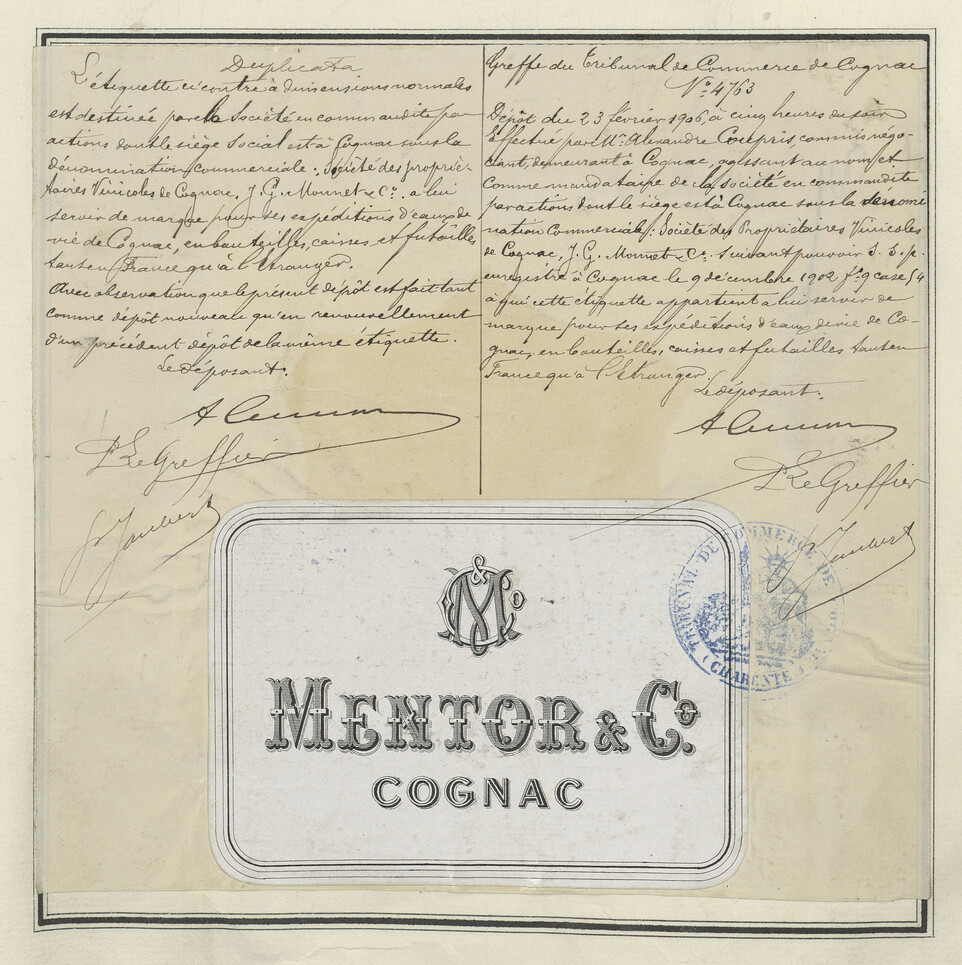 Duplicata
L'étiquette ci contre à dimensions normales
est destinée par la Société en commandite par
actions dont le siège Social est à Cognac sous la
dénomination commerciale : Société des proprié-
taires Vinicoles de Cognac, J. G. Monnet & Cº. a lui
servir de marque pour ses expéditions d'eaux de
vie de Cognac, en bouteilles, caisses, et futailles
tant en France qu'à l'étranger.
Avec observation que le présent dépôt est fait tant
comme dépôt nouveau qu'en renouvellement
d'un précédent dépôt de la même étiquette.
Le Déposant.
P. Le Greffier
Greffe du Tribunal de Commerce de Cognac
Nº 4763
Dépôt du 23 février 1906, à cinq heures du soir
Effectué par Mr. Alexandre commis négo-
ciant, demeurant à Cognac, agissant au nom et
comme mandataire de la société en commandite
par actions dont le siège est à Cognac sous la dénomi
nation Commerciale : Société des Propriétaires Vinicoles
de Cognac, J. G. Monnet & Cº. suivant pouvoir S. S. p.
enregistré à Cognac le 9 décembre 1902 fº 9 case 14
à qui cette étiquette appartient a lui servir de
marque pour ses expéditions d'eaux de vie de Co-
gnac, en bouteilles, caisses et futailles tant en
France qu'à l'Etranger
Le déposant.
P. Le Greffier
TRIBUNAL DE COMMERCE DE
(CHARENTE
M & Co
MENTOR & Co.
COGNAC